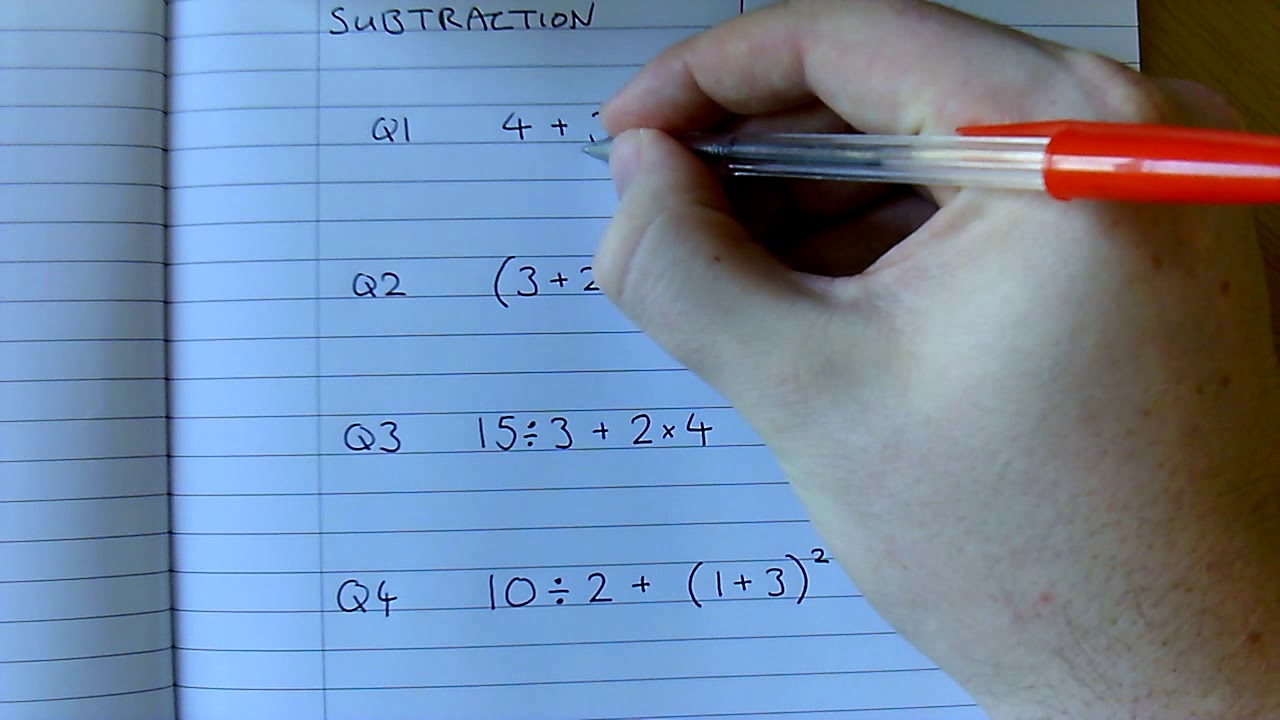 SUBTRACTION
Q1 4 +
Q2 (3 + 2
Q3 15 ÷ 3 + 2 × 4
Q4 10 ÷ 2 + (1 + 3)²